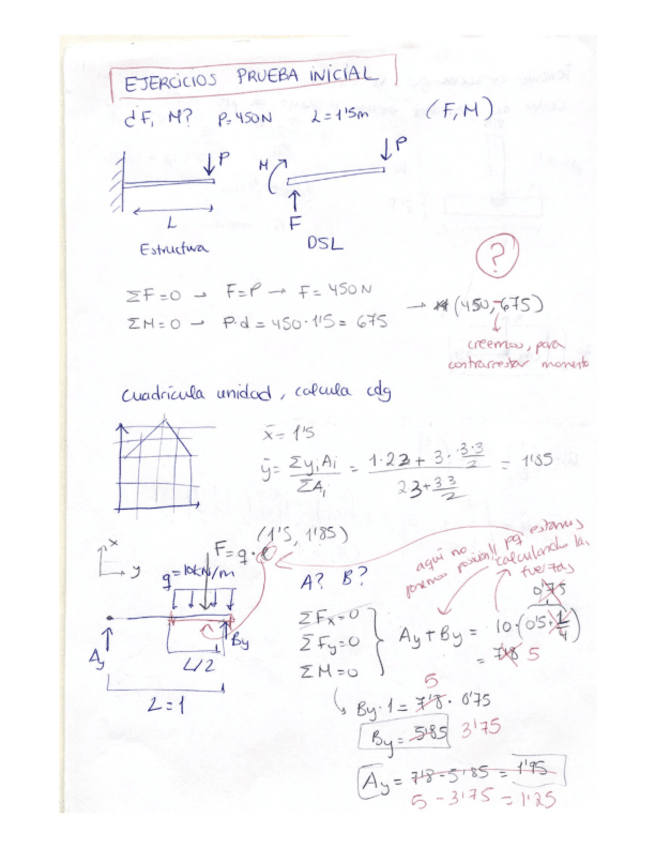 EJERCICIOS PRUEBA INICIAL
¿F, M? P=450N L=1'5m (F,M)
P
M
P
L
F
Estructura
DSL
?
ΣF=0 → F=P → F=450N
ΣM=0 → P·d=450·1'5=675 → (450,-675)
creemos, para
contrarrestar momento
Cuadrícula unidad, calcula cdg
x̄=1'5
ȳ= ΣyiAi / ΣAi = = 1'85
(1'5, 1'85)
x
y
F=q·ℓ
q=10kN/m
A? B?
aquí no
ponemos posición!! pq estamos
calculando la
fuerza
0'75
ΣFx=0
ΣFy=0
ΣM=0
Ay+By = 10·(0'5·1/4)
= 7'8 5
Ay
By
L/2
L=1
5
By·1=7'8·0'75
By=5'85 3'75
Ay=7'8-5'85=1'95
5-3'75=1'25